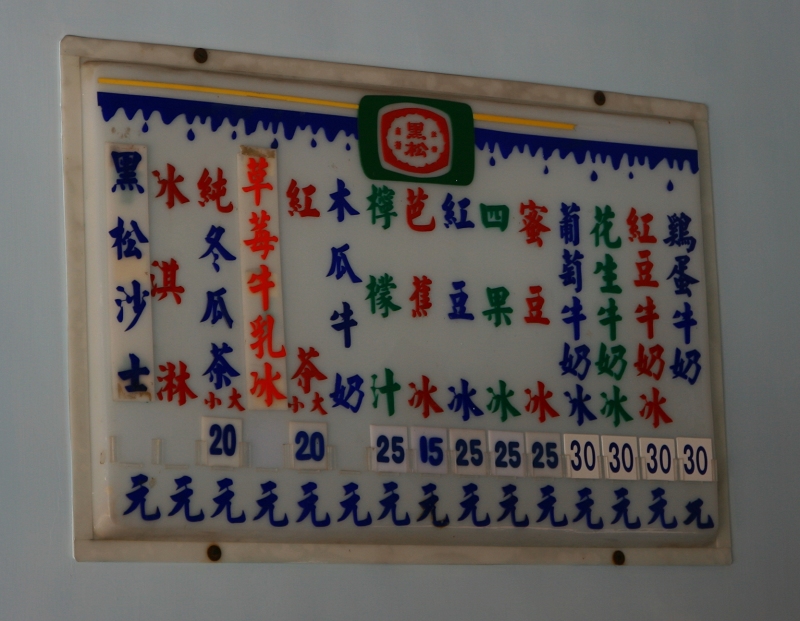 黑松
鷄蛋牛奶
紅豆牛奶冰
花生牛奶冰
葡萄牛奶冰
蜜豆冰
四果冰
紅豆冰
芭蕉冰
檸檬汁
木瓜牛奶
紅茶
小大
草莓牛乳冰
純冬瓜茶
小大
冰淇淋
黑松沙士
20 20 25 25 25 25 30 30 30 30
元 元 元 元 元 元 元 元 元 元 元 元 元 元 元